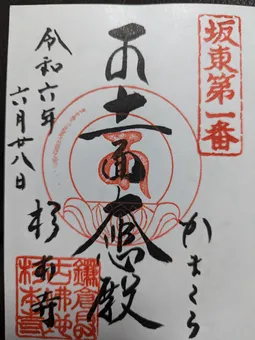 坂東第一番
かまくら
十一面大悲殿
令和六年
六月廿八日
杉本寺
鎌倉最
古佛地
杉本寺